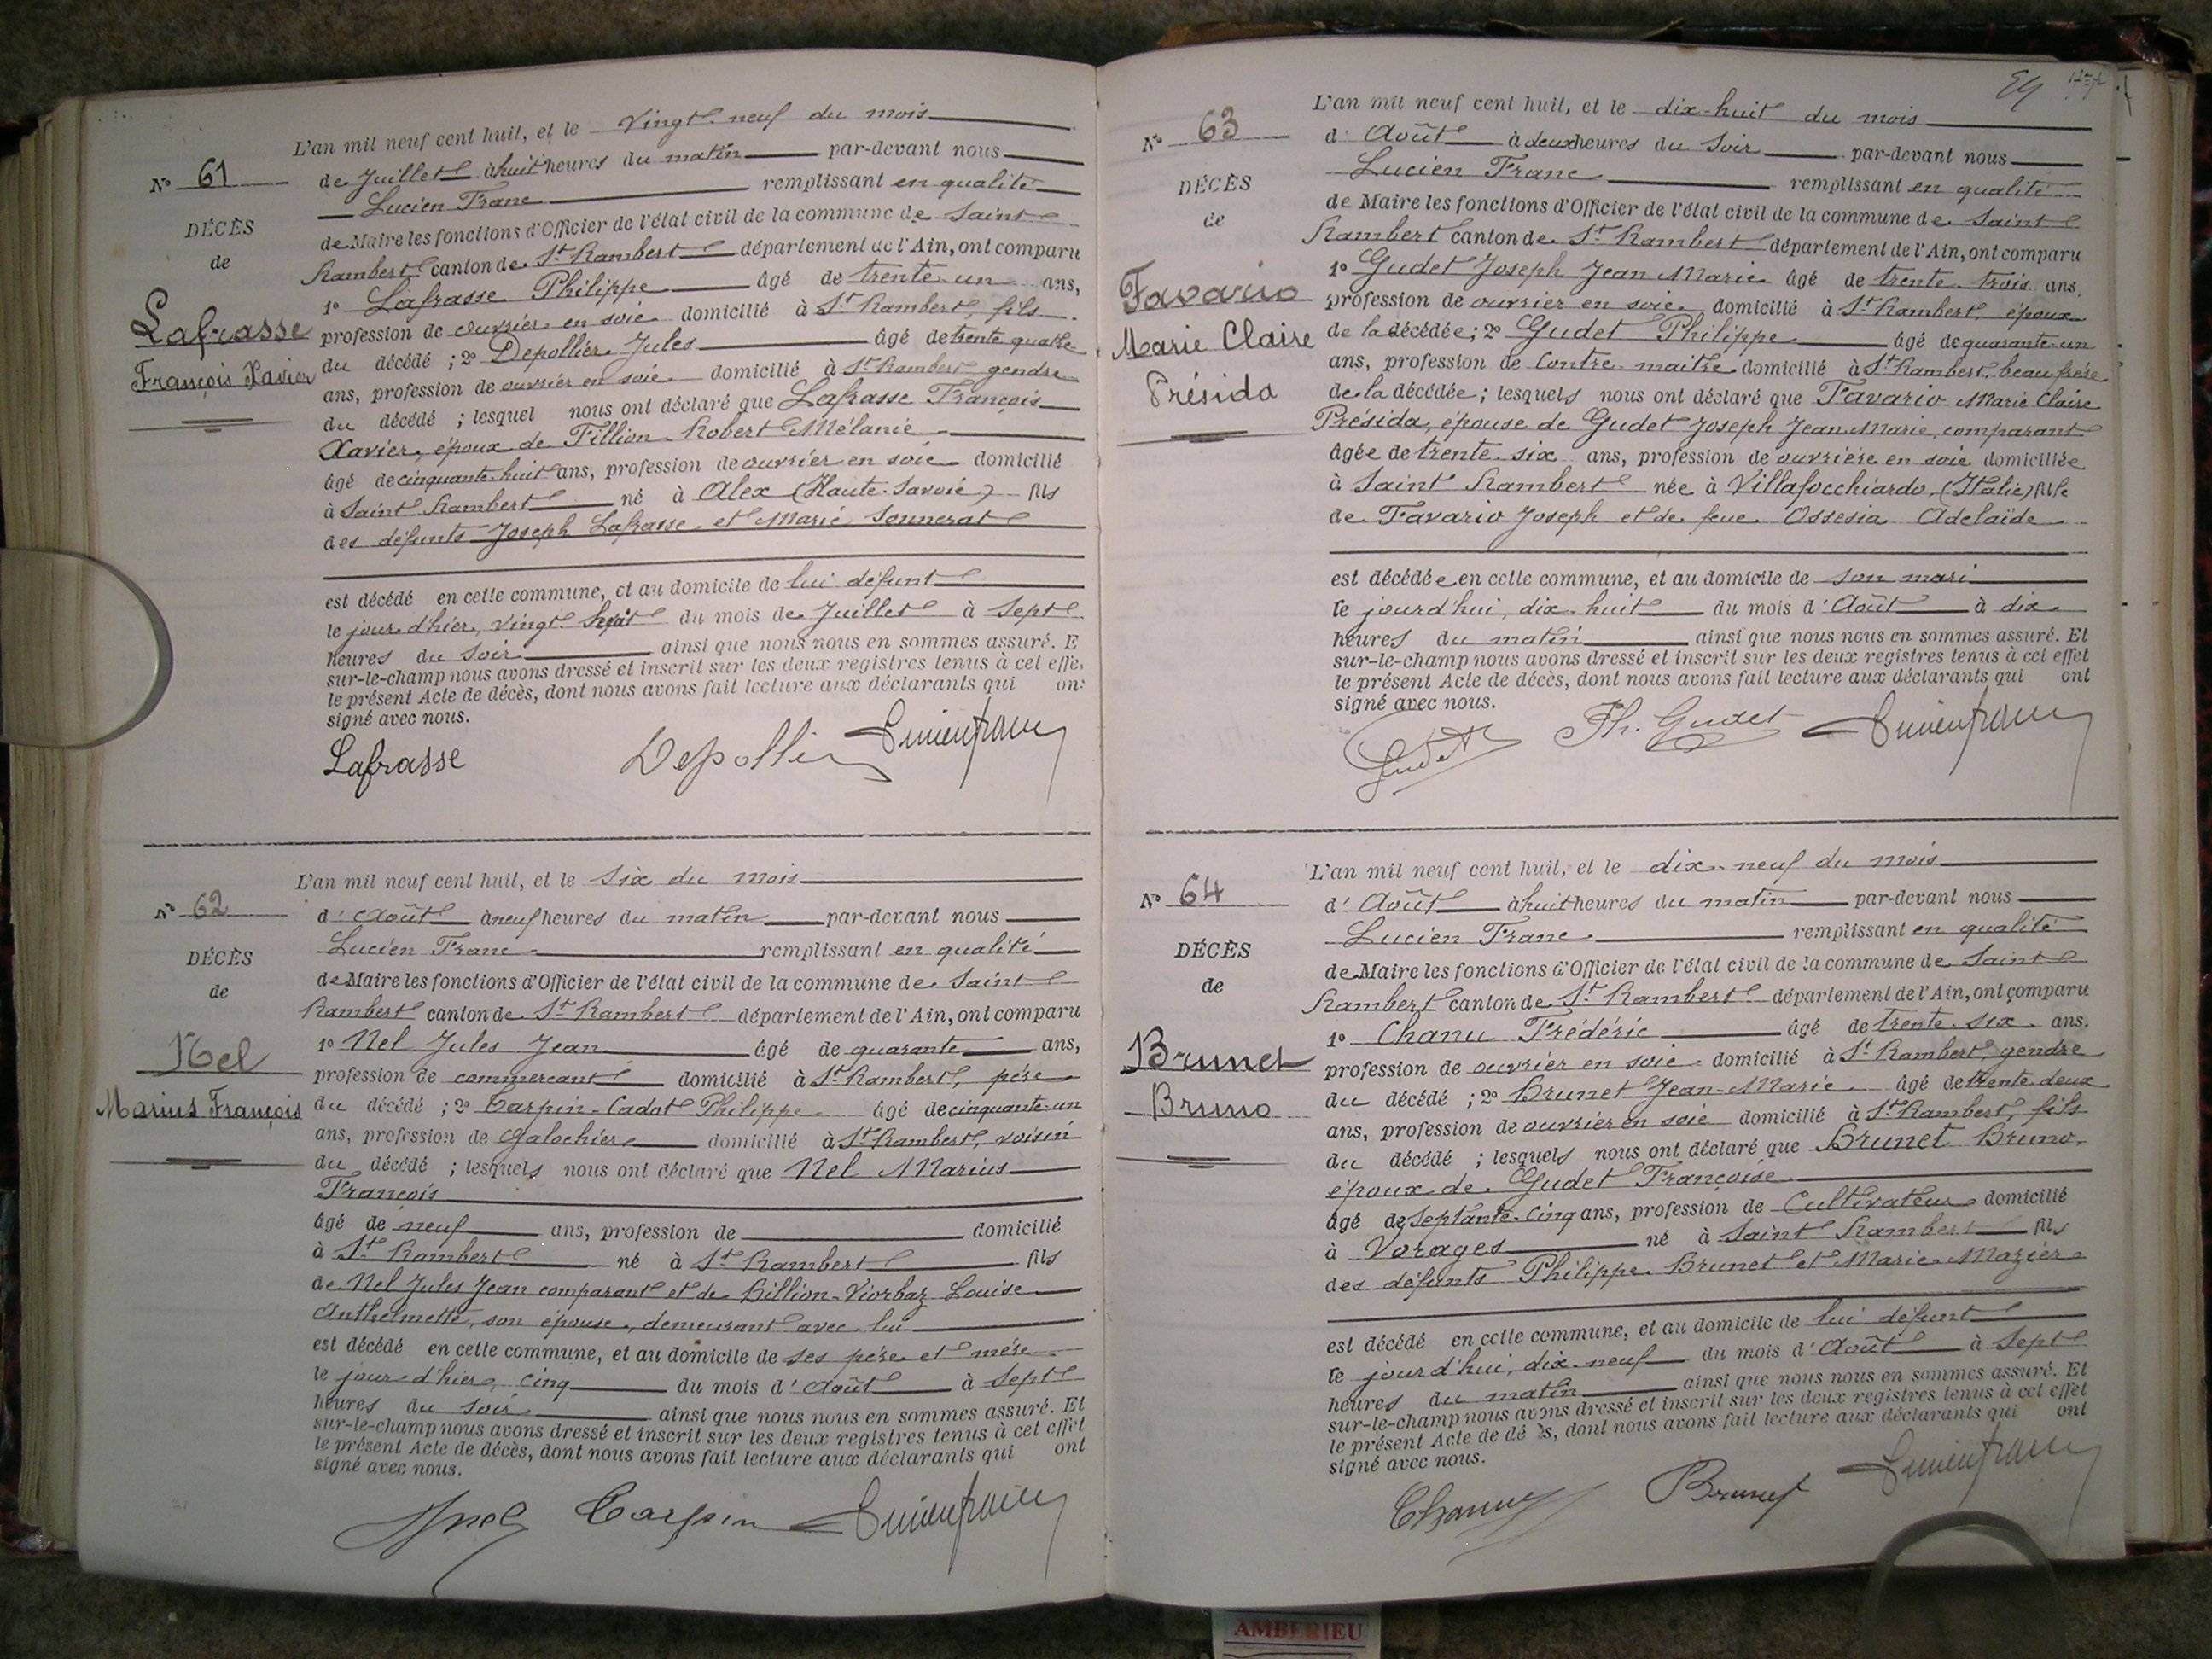 N° 61
DÉCÈS
de
Lafrasse
François Xavier
L'an mil neuf cent huit, et le vingt-neuf du mois
de Juillet à huit heures du matin par-devant nous
Lucien Franc remplissant en qualité
de Maire les fonctions d'Officier de l'état civil de la commune de Saint
Rambert canton de St Rambert département de l'Ain, ont comparu
1° Lafrasse Philippe âgé de trente-un ans,
profession de ouvrier en soie domicilié à St Rambert, fils
du décédé ; 2° Depollier Jules âgé de trente quatre
ans, profession de ouvrier en soie domicilié à St Rambert gendre
du décédé ; lesquel nous ont déclaré que Lafrasse François
Xavier, époux de Fillion-Robert Mélanie
âgé de cinquante-huit ans, profession de ouvrier en soie domicilié
à Saint Rambert né à Alex (Haute-Savoie) fils
des défunts Joseph Lafrasse et Marie Sonnerat
est décédé en cette commune, et au domicile de lui défunt
le jour d'hier, vingt huit du mois de Juillet à sept
heures du soir ainsi que nous nous en sommes assuré. E
sur-le-champ nous avons dressé et inscrit sur les deux registres tenus à cet effe
le présent Acte de décès, dont nous avons fait lecture aux déclarants qui on
signé avec nous.
Lafrasse Depollier Lucien franc
N° 62
DÉCÈS
de
Nel
Marius François
L'an mil neuf cent huit, et le six du mois
d'Août à neuf heures du matin par-devant nous
Lucien Franc remplissant en qualité
de Maire les fonctions d'Officier de l'état civil de la commune de Saint
Rambert canton de St Rambert département de l'Ain, ont comparu
1° Nel Jules Jean âgé de quarante ans,
profession de commercant domicilié à St Rambert, père
du décédé ; 2° Carpin-Cadot Philippe âgé de cinquante-un
ans, profession de galochier domicilié à St Rambert, voisin
du décédé ; lesquels nous ont déclaré que Nel Marius
François
âgé de neuf ans, profession de domicilié
à St Rambert né à St Rambert fils
de Nel Jules Jean comparant et de Billion-Viorbaz Louise
Anthelmette, son épouse, demeurant avec lui
est décédé en cette commune, et au domicile de ses père et mère
le jour d'hier, cinq du mois d'Août à sept
heures du soir ainsi que nous nous en sommes assuré. Et
sur-le-champ nous avons dressé et inscrit sur les deux registres tenus à cet effet
le présent Acte de décès, dont nous avons fait lecture aux déclarants qui ont
signé avec nous.
Nel Carpin Lucien franc
N° 63
DÉCÈS
de
Favario
Marie Claire
Présida
L'an mil neuf cent huit, et le dix-huit du mois
d'Août à deux heures du soir par-devant nous
Lucien Franc remplissant en qualité
de Maire les fonctions d'Officier de l'état civil de la commune de Saint
Rambert canton de St Rambert département de l'Ain, ont comparu
1° Gudet Joseph Jean Marie âgé de trente-trois ans.
profession de ouvrier en soie domicilié à St Rambert, époux
de la décédée ; 2° Gudet Philippe âgé de quarante-un
ans, profession de Contre-maitre domicilié à St Rambert, beau frère
de la décédée ; lesquels nous ont déclaré que Favario Marie Claire
Présida, épouse de Gudet Joseph Jean Marie, comparant
âgée de trente-six ans, profession de ouvrière en soie domiciliée
à Saint Rambert née à Villafocchiardo (Italie) fille
de Favario Joseph et de feue Ossesia Adelaïde
est décédée en cette commune, et au domicile de son mari
le jourd'hui, dix-huit du mois d'Août à dix
heures du matin ainsi que nous nous en sommes assuré. Et
sur-le-champ nous avons dressé et inscrit sur les deux registres tenus à cet effet
le présent Acte de décès, dont nous avons fait lecture aux déclarants qui ont
signé avec nous.
Gudet Ph. Gudet Lucien franc
N° 64
DÉCÈS
de
Brunet
Bruno
L'an mil neuf cent huit, et le dix-neuf du mois
d'Août à huit heures du matin par-devant nous
Lucien Franc remplissant en qualité
de Maire les fonctions d'Officier de l'état civil de la commune de Saint
Rambert canton de St Rambert département de l'Ain, ont comparu
1° Chanu Frédéric âgé de trente-six ans.
profession de ouvrier en soie domicilié à St Rambert, gendre
du décédé ; 2° Brunet Jean-Marie âgé de trente deux
ans, profession de ouvrier en soie domicilié à St Rambert, fils
du décédé ; lesquels nous ont déclaré que Brunet Bruno
époux de Gudet Françoise
âgé de septante-cinq ans, profession de Cultivateur domicilié
à Vorages né à Saint Rambert fils
des défunts Philippe Brunet et Marie Mazier
est décédé en cette commune, et au domicile de lui défunt
le jourd'hui, dix-neuf du mois d'Août à sept
heures du matin ainsi que nous nous en sommes assuré. Et
sur-le-champ nous avons dressé et inscrit sur les deux registres tenus à cet effet
le présent Acte de dé ès, dont nous avons fait lecture aux déclarants qui ont
signé avec nous.
Chanu Brunet Lucien franc
AMBERIEU